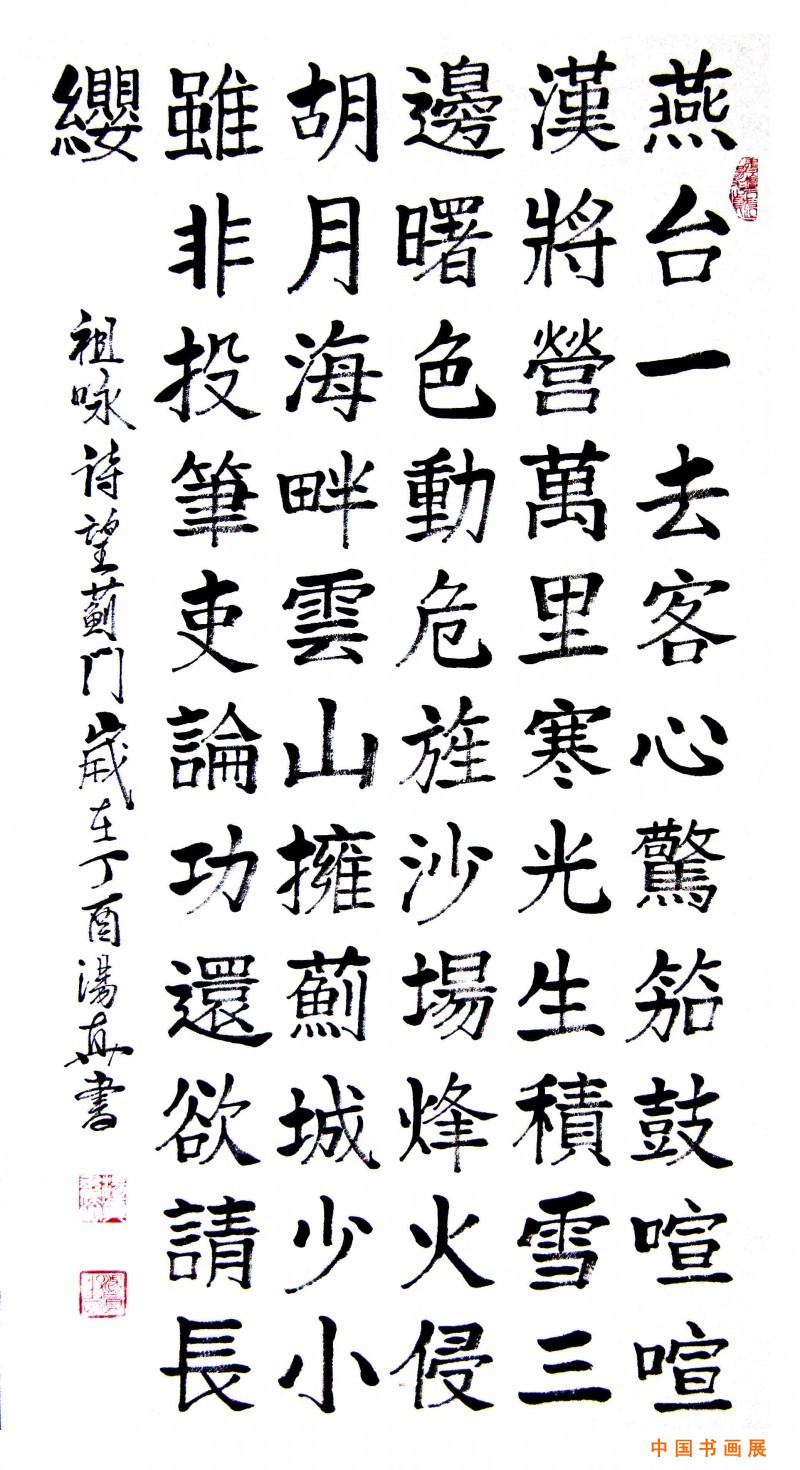 燕台一去客心驚笳鼓喧喧
漢將營萬里寒光生積雪三
邊曙色動危旌沙場烽火侵
胡月海畔雲山擁薊城少小
雖非投筆吏論功還欲請長
纓
祖咏诗望蓟门歲在丁酉湯真書
中国书画展